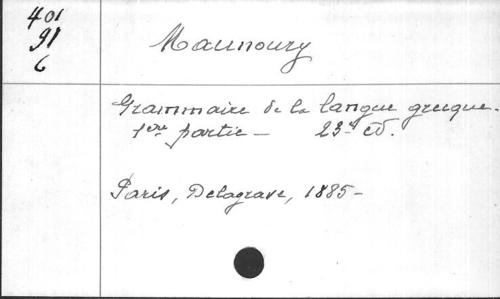 401
91
6
Maunoury
Grammaire de la langue grecque.
1ère partie — 23e éd.
Paris, Delagrave, 1885 —